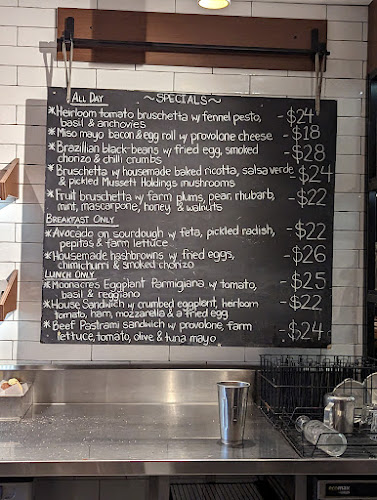 ALL DAY ~SPECIALS~
*Heirloom tomato bruschetta w/ fennel pesto, -$24
basil & anchovies
*Miso mayo bacon & egg roll w/ provolone cheese -$18
*Brazillian black-beans w/ fried egg, smoked -$28
chorizo & chilli crumbs
*Bruschetta w/ housemade baked ricotta, salsa verde -$24
& pickled Mussett Holdings mushrooms
*Fruit bruschetta w/ farm plums, pear, rhubarb, -$22
mint, mascarpone, honey & walnuts
BREAKFAST ONLY
*Avocado on sourdough w/ feta, pickled radish, -$22
pepitas & farm lettuce
*Housemade hashbrowns w/ fried eggs, -$26
chimichurri & smoked chorizo
LUNCH ONLY
*Moonacres Eggplant Parmigiana w/ tomato, -$25
basil & reggiano
*House Sandwich w/ crumbed eggplant, heirloom -$22
tomato, ham, mozzarella & a fried egg
*Beef Pastrami sandwich w/ provolone, farm -$24
lettuce, tomato, olive & tuna mayo